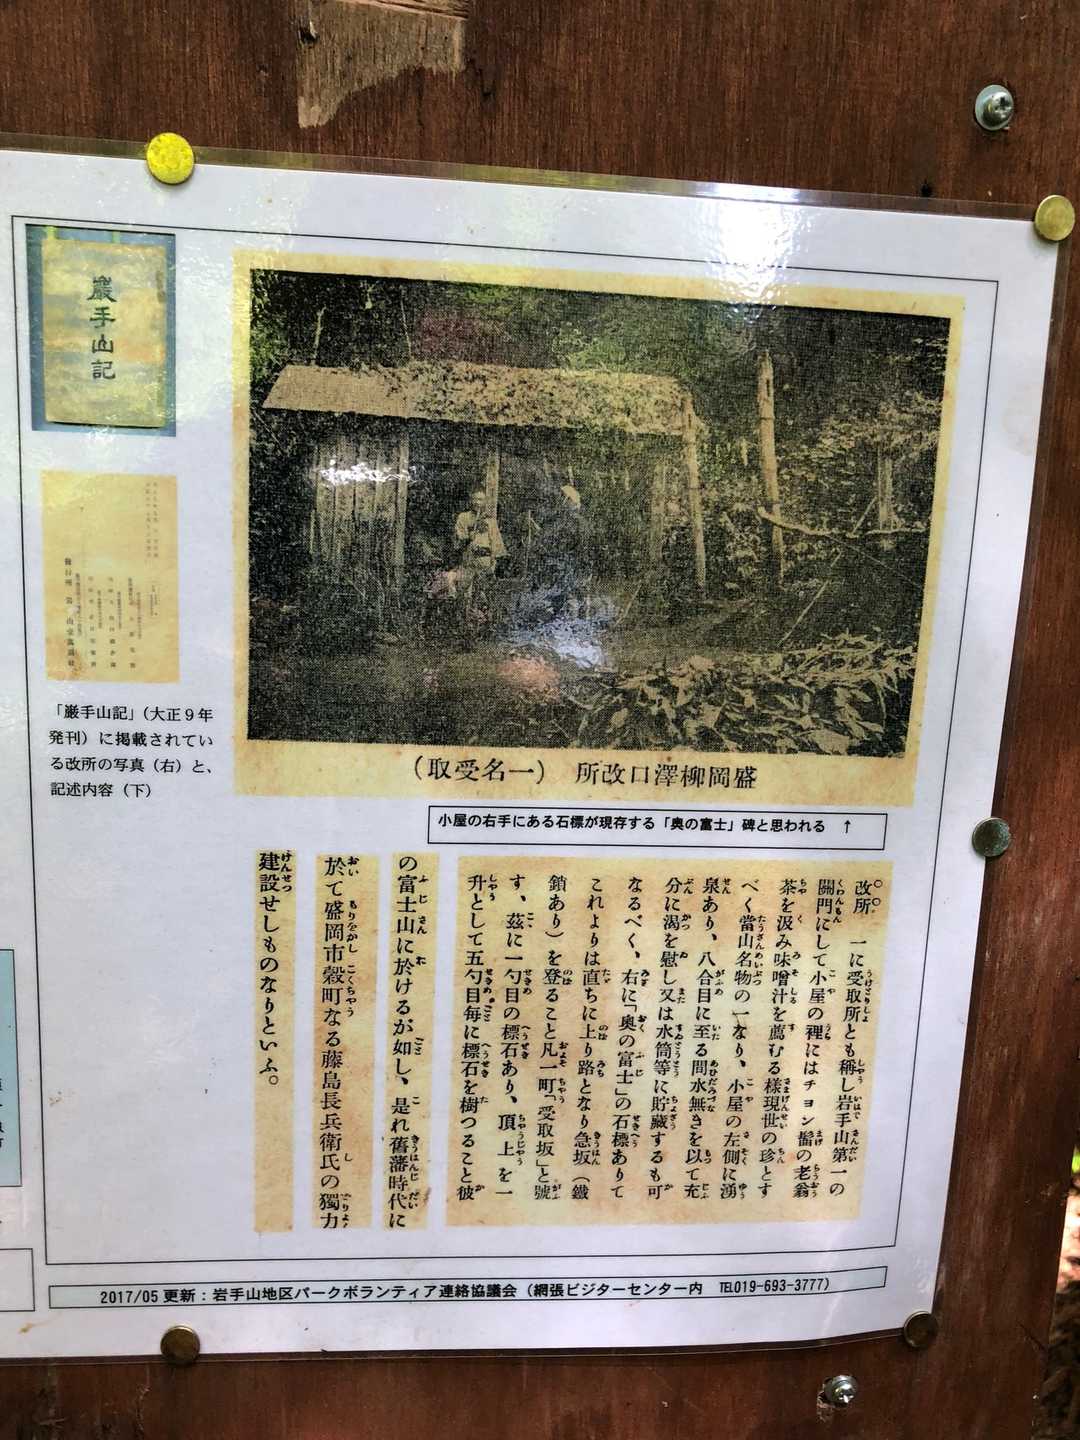 巖手山記
發行所
「巌手山記」（大正９年
発刊）に掲載されてい
る改所の写真（右）と、
記述内容（下）
（取受名一）　所改口澤柳岡盛
小屋の右手にある石標が現存する「奥の富士」碑と思われる　↑
改所　一に受取所とも稱し岩手山第一の
關門にして小屋の裡にはチョン髷の老翁
茶を汲み味噌汁を薦むる樣現世の珍とす
べく當山名物の一なり、小屋の左側に湧
泉あり、八合目に至る間水無きを以て充
分に渇を慰し又は水筒等に貯藏するも可
なるべく、右に「奥の富士」の石標ありて
これよりは直ちに上り路となり急坂（鐵
鎖あり）を登ること凡一町「受取坂」と號
す、茲に一勺目の標石あり、頂上を一
升として五勺目毎に標石を樹つること彼
の富士山に於けるが如し、是れ舊藩時代に
於て盛岡市穀町なる藤島長兵衛氏の獨力
建設せしものなりといふ。
2017/05 更新：岩手山地区パークボランティア連絡協議会（網張ビジターセンター内　℡019-693-3777）